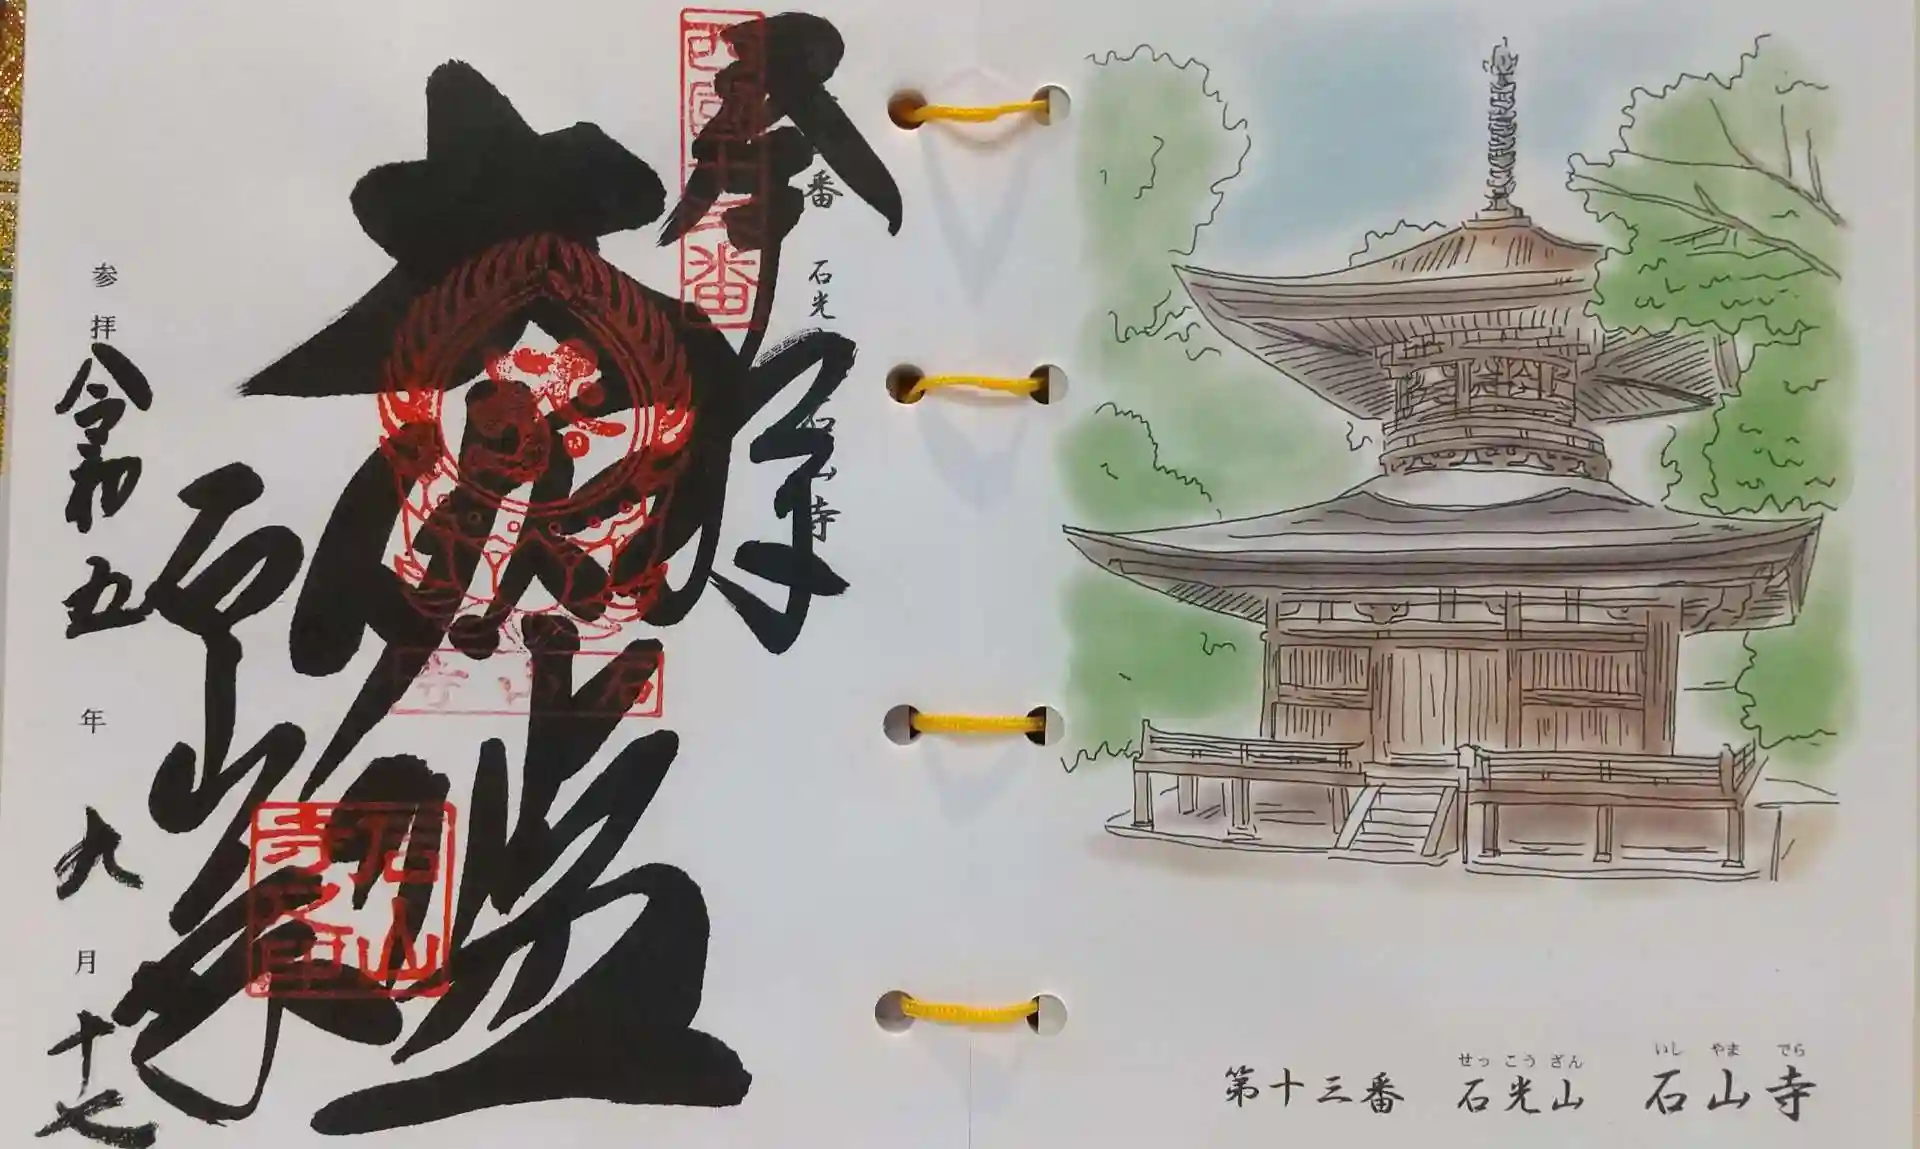 奉拝
大伽藍
石山寺
参拝
令和五年九月十七
西国十三番
番 石光
石山寺
石山寺
石山寺之印
せっこうざん いしやまでら
第十三番 石光山 石山寺